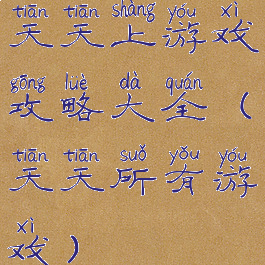 tiān tiān shàng yóu xì
天天上游戏
gōng lüè dà quán
攻略大全（
tiān tiān suǒ yǒu yóu
天天所有游
xì
戏）